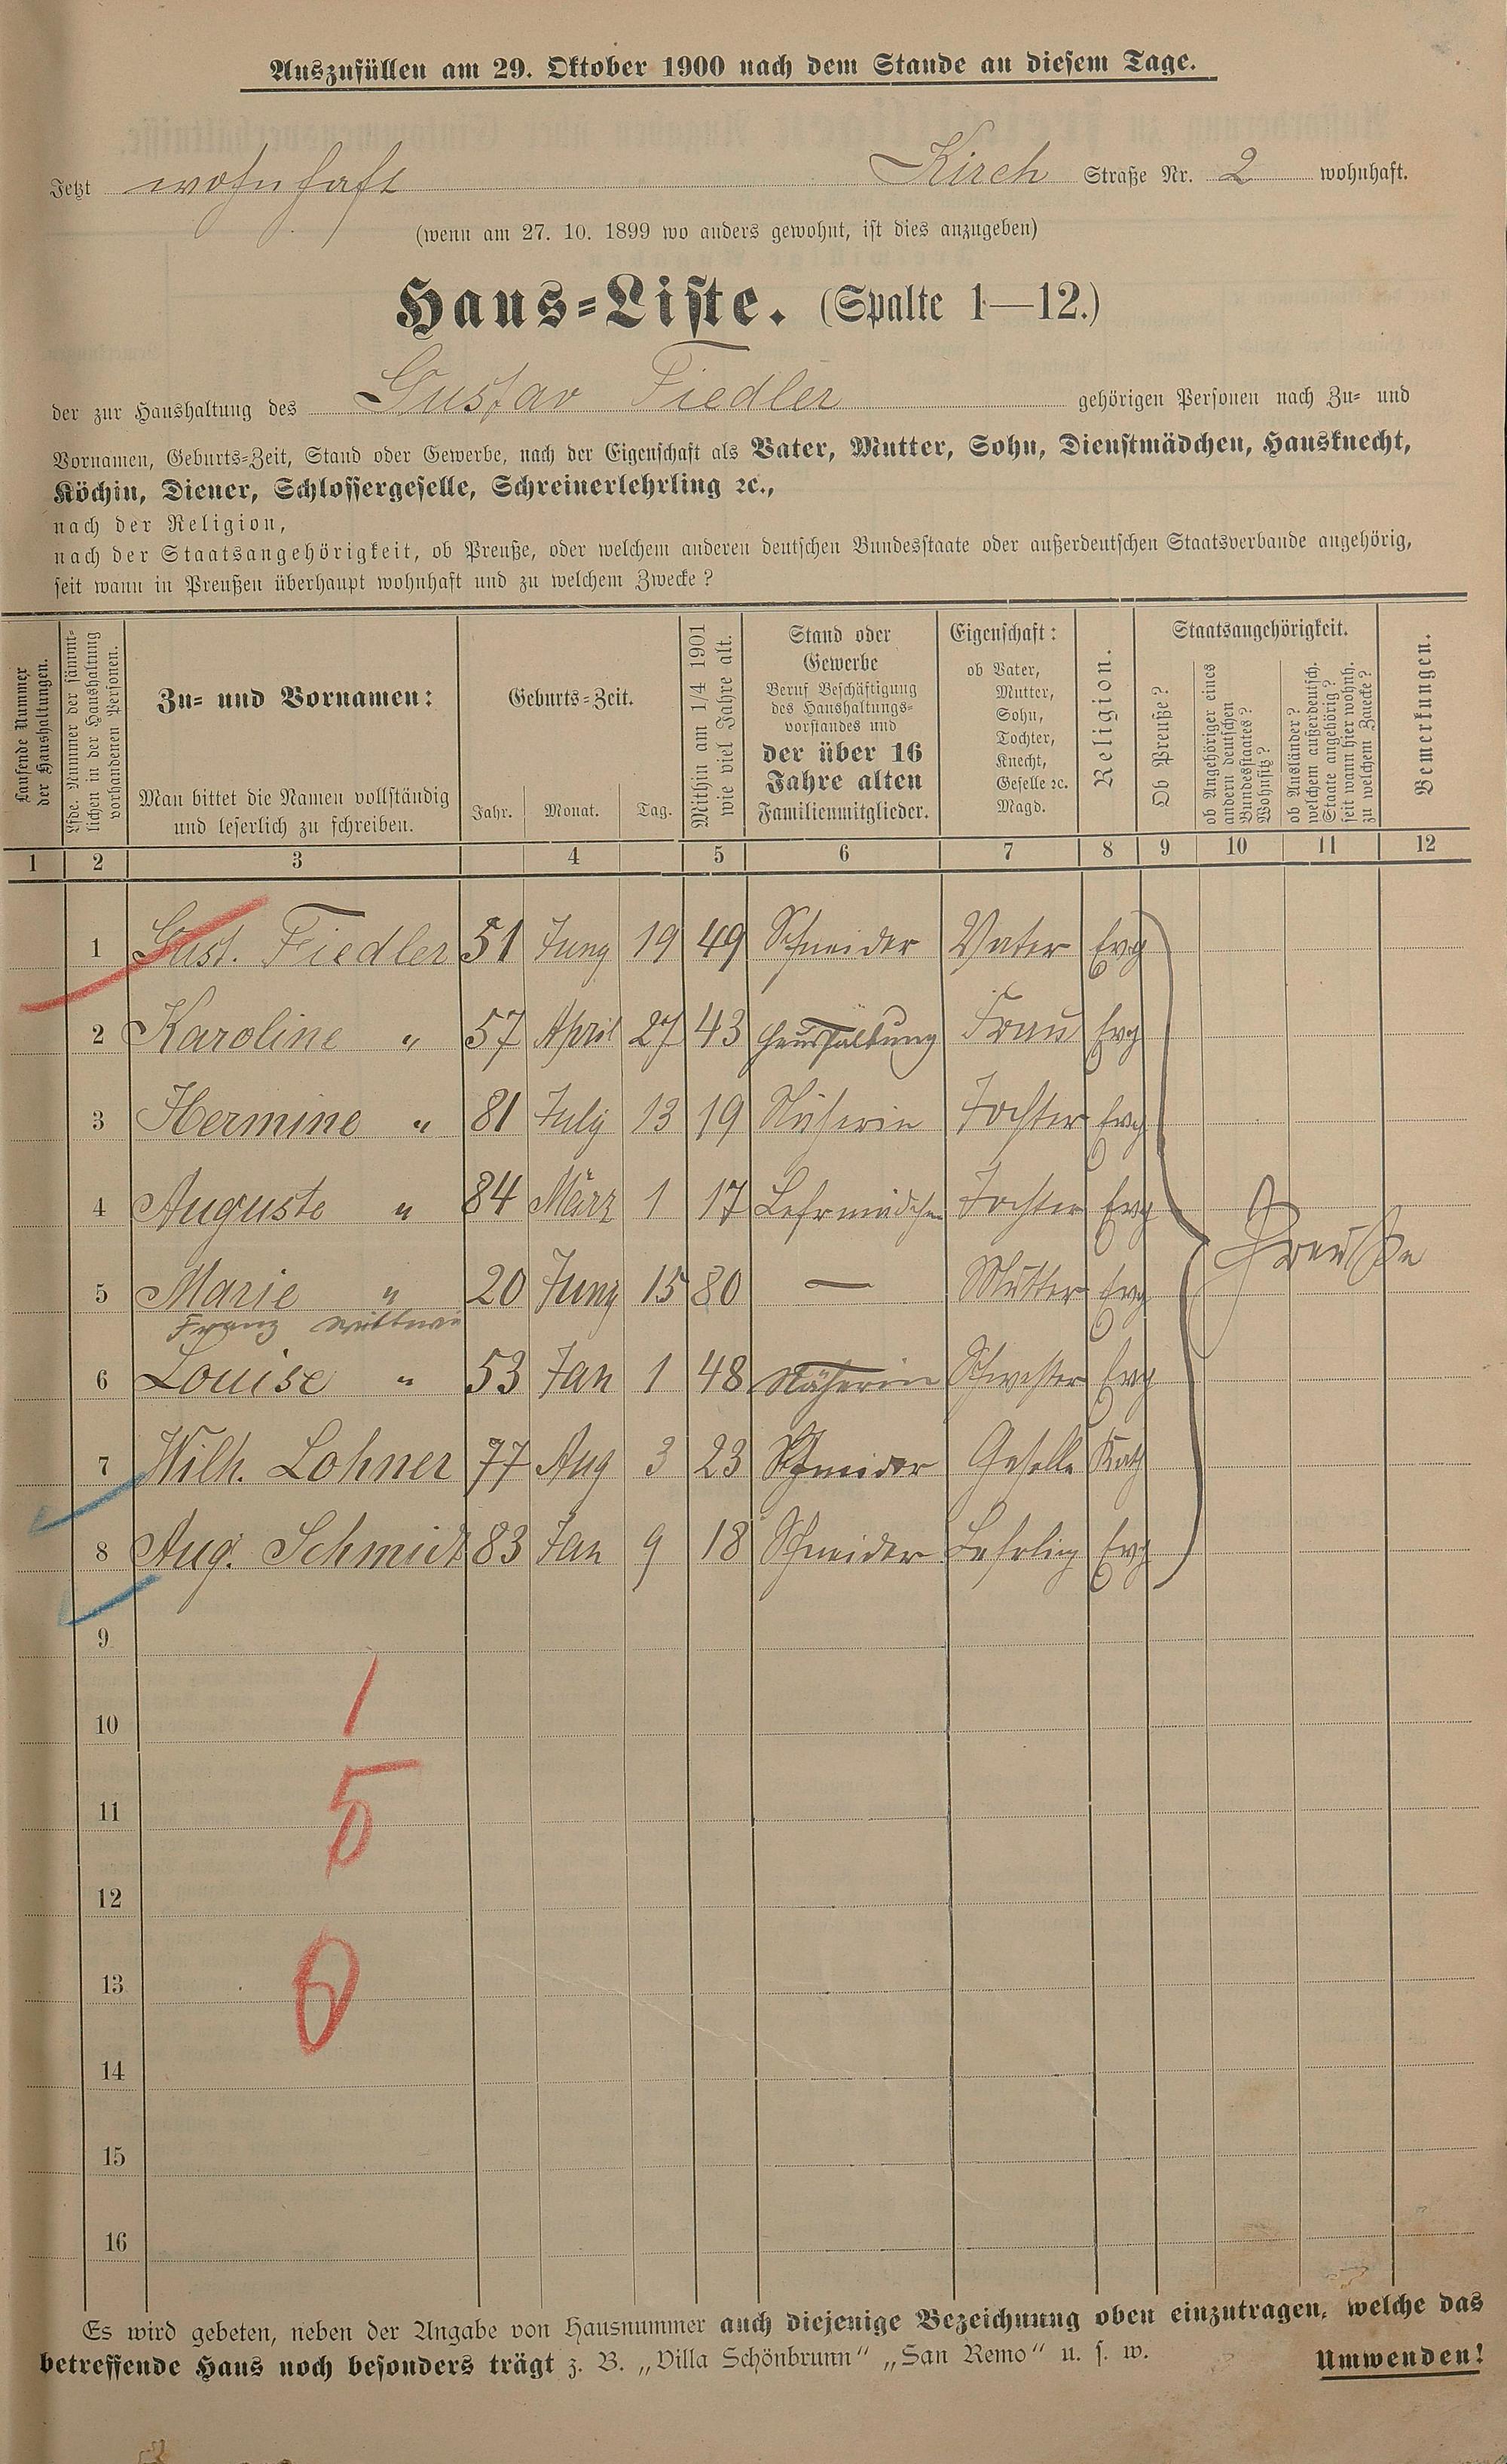 Auszufüllen am 29. Oktober 1900 nach dem Stande an diesem Tage.
Jetzt wohnhaft Kirch Straße Nr. 2 wohnhaft.
(wenn am 27. 10. 1899 wo anders gewohnt, ist dies anzugeben)
Haus-Liste. (Spalte 1—12.)
der zur Haushaltung des Gustav Fiedler gehörigen Personen nach Zu- und
Vornamen, Geburts-Zeit, Stand oder Gewerbe, nach der Eigenschaft als Vater, Mutter, Sohn, Dienstmädchen, Hausknecht,
Köchin, Diener, Schlossergeselle, Schreinerlehrling ꝛc.,
nach der Religion,
nach der Staatsangehörigkeit, ob Preuße, oder welchem anderen deutschen Bundesstaate oder außerdeutschen Staatsverbande angehörig,
seit wann in Preußen überhaupt wohnhaft und zu welchem Zwecke?
Laufende Nummer
der Haushaltungen.
Lfde. Nummer der sämmt-
lichen in der Haushaltung
vorhandenen Personen.
Zu- und Vornamen:
Man bittet die Namen vollständig
und leserlich zu schreiben.
Geburts-Zeit.
Jahr. Monat. Tag.
Mithin am 1/4 1901
wie viel Jahre alt.
Stand oder
Gewerbe
Beruf Beschäftigung
des Haushaltungs-
vorstandes und
der über 16
Jahre alten
Familienmitglieder.
Eigenschaft:
ob Vater,
Mutter,
Sohn,
Tochter,
Knecht,
Geselle ꝛc.
Magd.
Religion.
Staatsangehörigkeit.
Ob Preuße?
ob Angehöriger eines
andern deutschen
Bundesstaates?
Wohnsitz?
ob Ausländer?
welchem außerdeutsch.
Staate angehörig?
seit wann hier wohnh.
zu welchem Zwecke?
Bemerkungen.
1 2 3 4 5 6 7 8 9 10 11 12
1 Gust. Fiedler 51 Juny 19 49 Schneider Vater Evg
2 Karoline " 57 April 27 43 Haushaltung Frau Evg
3 Hermine " 81 July 13 19 Näherin Tochter Evg
4 Auguste " 84 März 1 17 Lehrmädchen Tochter Evg
Preuße
5 Marie " 20 Juny 15 80 — Mutter Evg
Franz Wittwe
6 Louise " 53 Jan 1 48 Näherin Schwester Evg
7 Wilh. Lohner 77 Aug 3 23 Schneider Geselle Kath
8 Aug. Schmidt 83 Jan 9 18 Schneider Lehrling Evg
9
1
10
5
11
12
0
13
14
15
16
Es wird gebeten, neben der Angabe von Hausnummer auch diejenige Bezeichnung oben einzutragen, welche das
betreffende Haus noch besonders trägt z. B. „Villa Schönbrunn“ „San Remo“ u. s. w. Umwenden!